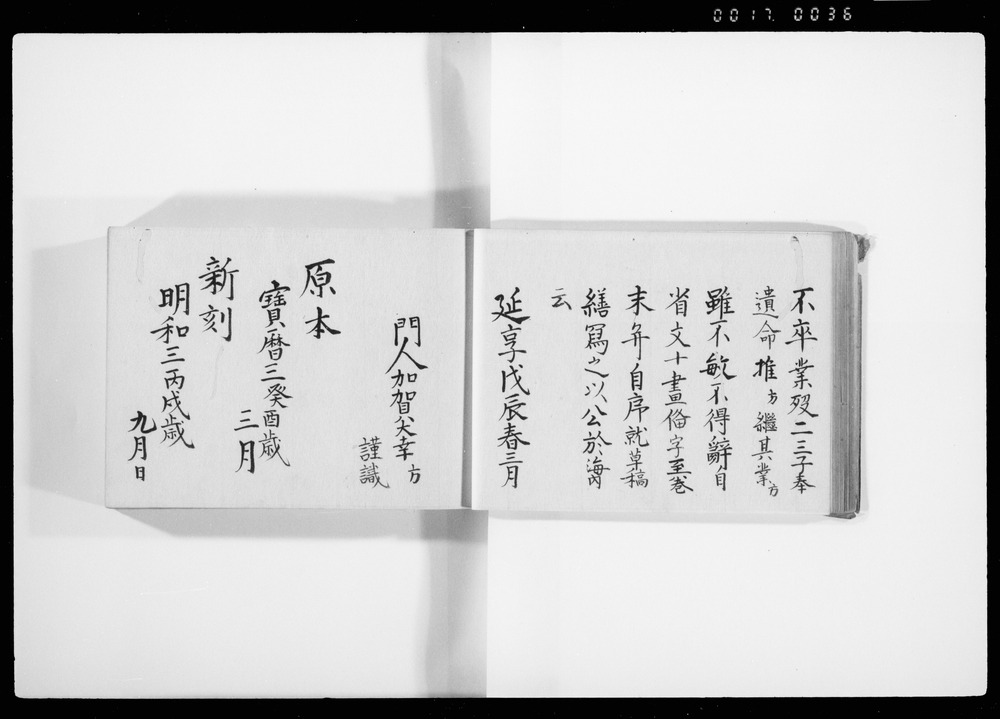 0017 0036
不卒業歿二三子奉
遺命推方繼其業方
雖不敏不得辭自
省文十畫俻字至巻
末并自序就草稿
繕寫之以公於海内
云
延享戊辰春三月
門人加賀美幸方
謹識
原本
寶暦三癸酉歳
三月
新刻
明和三丙戌歳
九月日